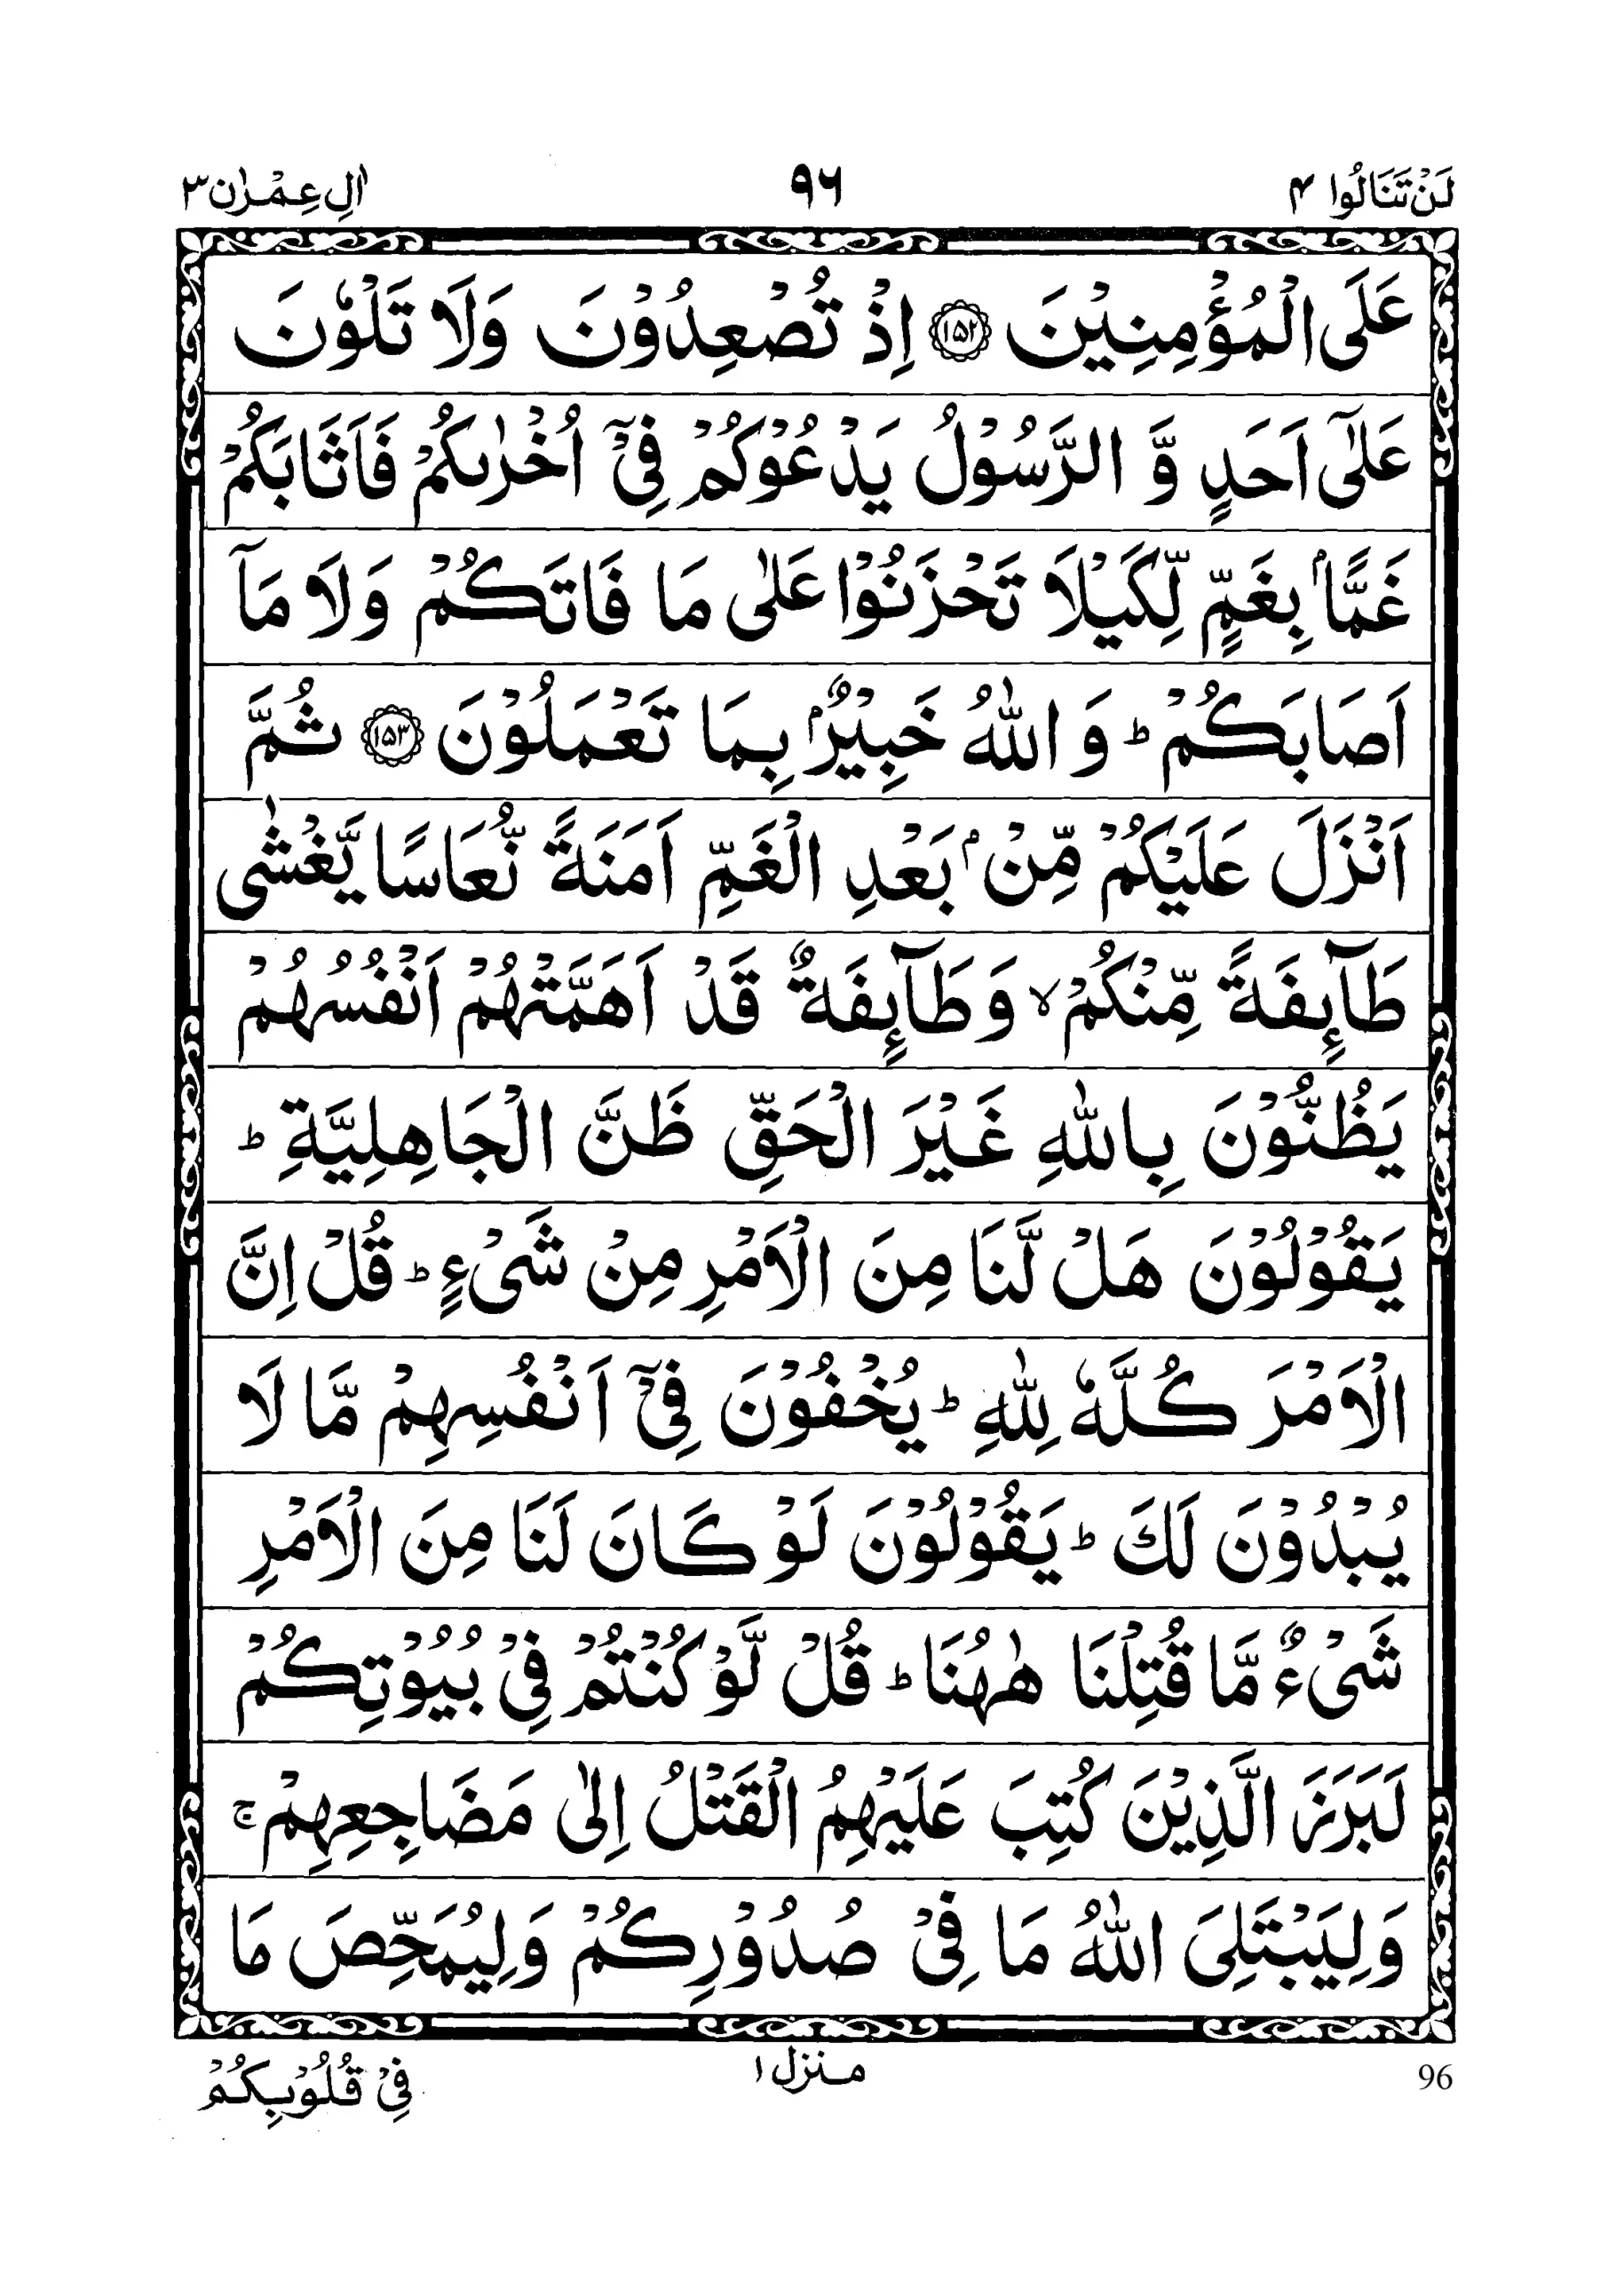 لَنْ تَنَالُوا ۴ ۹۶ اٰلِ عِمْرٰن ۳
عَلَى الْمُؤْمِنِيْنَ ﴿۱۵۲﴾ اِذْ تُصْعِدُوْنَ وَلَا تَلْوٗنَ
عَلٰٓى اَحَدٍ وَّ الرَّسُوْلُ يَدْعُوْكُمْ فِىْٓ اُخْرٰىكُمْ فَاَثَابَكُمْ
غَمًّاۢ بِغَمٍّ لِّكَيْلَا تَحْزَنُوْا عَلٰى مَا فَاتَكُمْ وَلَا مَآ
اَصَابَكُمْ ؕ وَ اللّٰهُ خَبِيْرٌۢ بِمَا تَعْمَلُوْنَ ﴿۱۵۳﴾ ثُمَّ
اَنْزَلَ عَلَيْكُمْ مِّنْۢ بَعْدِ الْغَمِّ اَمَنَةً نُّعَاسًا يَّغْشٰى
طَآئِفَةً مِّنْكُمْ ۙ وَطَآئِفَةٌ قَدْ اَهَمَّتْهُمْ اَنْفُسُهُمْ
يَظُنُّوْنَ بِاللّٰهِ غَيْرَ الْحَقِّ ظَنَّ الْجَاهِلِيَّةِ ؕ
يَقُوْلُوْنَ هَلْ لَّنَا مِنَ الْاَمْرِ مِنْ شَىْءٍ ؕ قُلْ اِنَّ
الْاَمْرَ كُلَّهٗ لِلّٰهِ ؕ يُخْفُوْنَ فِىْٓ اَنْفُسِهِمْ مَّا لَا
يُبْدُوْنَ لَكَ ؕ يَقُوْلُوْنَ لَوْ كَانَ لَنَا مِنَ الْاَمْرِ
شَىْءٌ مَّا قُتِلْنَا هٰهُنَا ؕ قُلْ لَّوْ كُنْتُمْ فِىْ بُيُوْتِكُمْ
لَبَرَزَ الَّذِيْنَ كُتِبَ عَلَيْهِمُ الْقَتْلُ اِلٰى مَضَاجِعِهِمْ ۚ
وَلِيَبْتَلِىَ اللّٰهُ مَا فِىْ صُدُوْرِكُمْ وَلِيُمَحِّصَ مَا
96 منزل ۱ فِىْ قُلُوْبِكُمْ